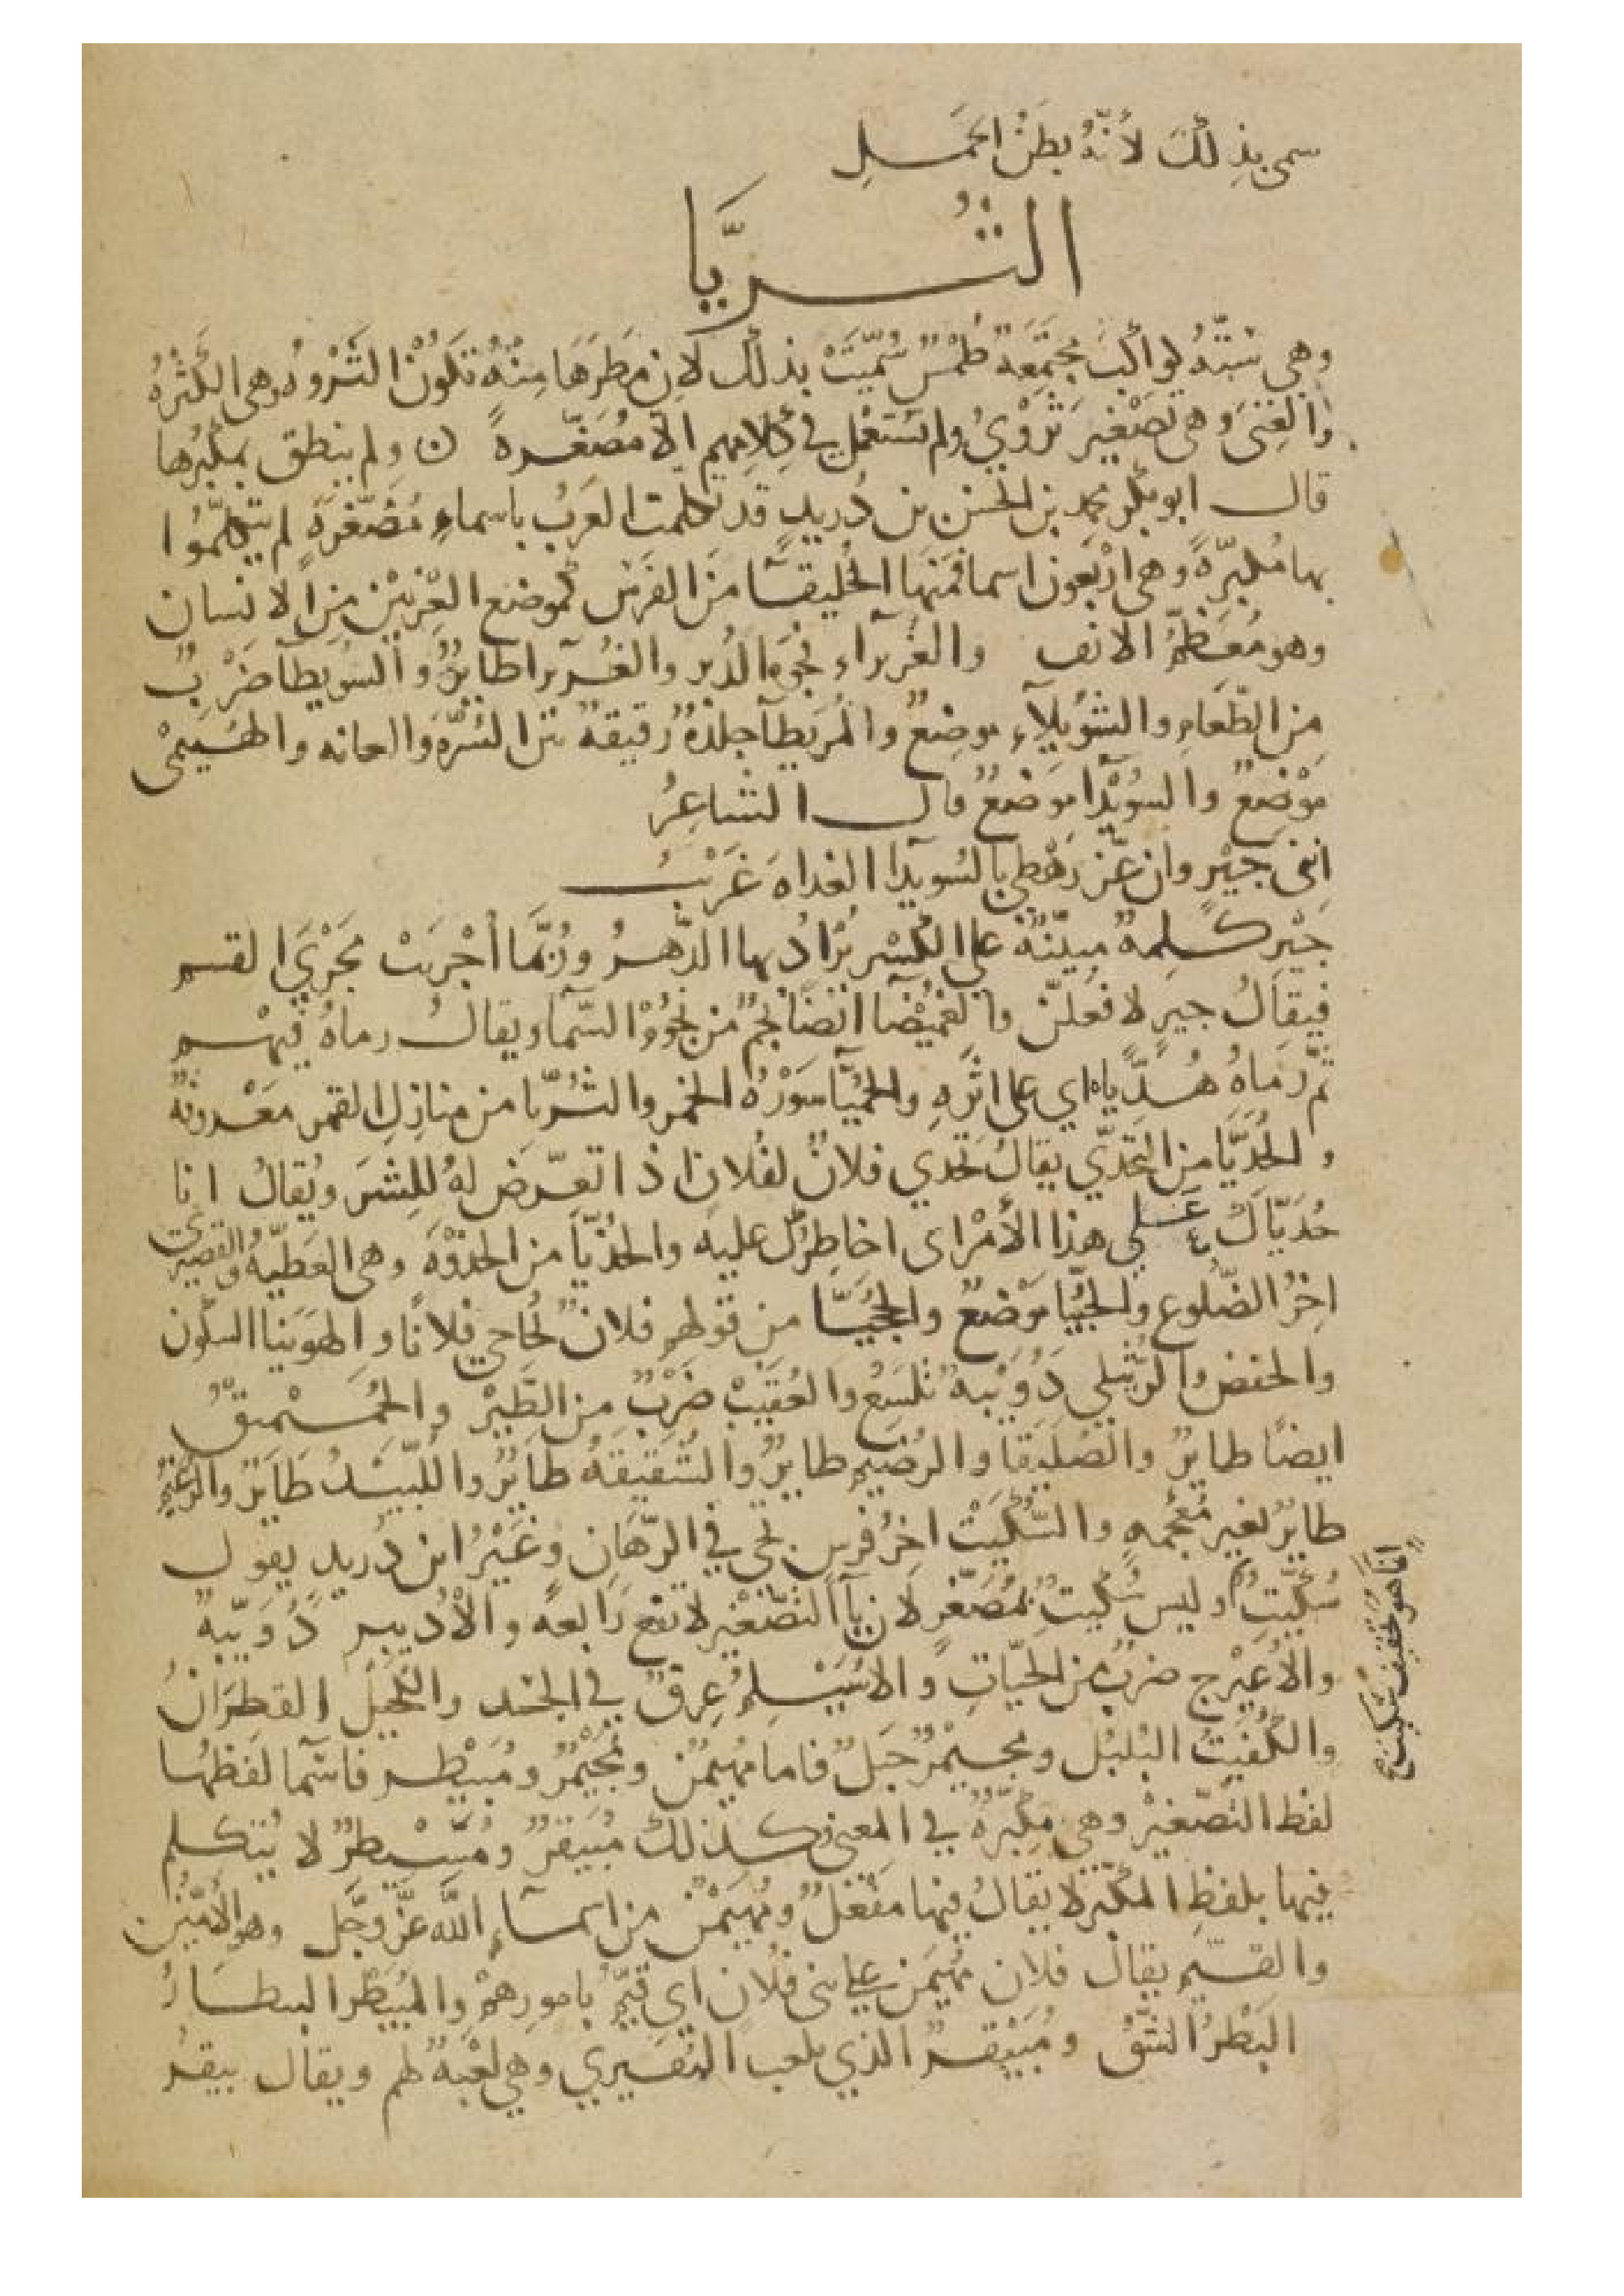 سمى بذِلكَ لأنّهُ بطنُ الحَمَلِ
الثُّرَيَّا
وهي ستّهُ كواكبَ مجتمِعَةٌ طُمْسٌ سُمّيَتْ بذلك لان مَطرَهَا مِنْهُ تكونُ الثَرْوهُ وهى الكَثْرهُ
والغِنَى وهى تَصْغير ثَرْوَىْ ولم تستَعْمل في كلامِهم الّا مُصَغّرهً ن ولم ينطق بمكبَّرها
قال ابو بكر محمد بن الحسَن بن دُريدٍ قد تكلمت العَربُ باسماءٍ مُصَغّرهً لم يتكلمُوا
بها مُكبّرهً وهى ارْبَعُون اسما فمنها الخُليقَا مَن الفرسِ كموضع العِرْنِيْن من الانسان
وهو مُعَظمُ الانف والغُريراء نحوَه الدُبر والغُريرا طايرٌ والسُويطآ ضَرْبٌ
من الطّعَامِ والشوُيلآءِ موضِعٌ والمُريَطآ جلدَهٌ رقيقهٌ بين السُرّه والعانه والهُيَيْمَى
مَوْضعٌ والسُويْدا موضعٌ قال الشاعِرُ
اِننى جيْرِ وان عَزّ رَهْطِي بالسُويدا الغداهَ غَريْبُ
جَيْرِ كلِمهٌ مبنيّهٌ على الكسْرِ يُرادُ بها الدّهرُ ورُبَّمَا أُجْرِيَتْ مجَرْيَ القسم
فيقالُ جيرِ لا فعَلنّ والغميْضا ايضًا نجمٌ من نجُومْ السّما ويقالُ رماهُ بِسَهْم
ثمّ رَماهُ هُدَيّاه اي على اثَرهِ والحُميّا سَوْرَهُ الخمرِ والثُريّا من منازِل القمر معَروفهٌ
والحُدَيَّا من التحَدّي يقالُ تحَدي فلانٌ لفُلانٍ اذا تعرّض لهُ للِشرَ ويُقالُ انا
حُدَيّاكَ عَلي هذا الأمْر اى اخاطِرُك عليه والحُذَيّا من الحذْوَه وهي العَطيّهُ والقُصَيرَى
اخِرُ الضّلوع والحُبَيّا موَضعٌ والحُجَيّا من قولهم فلانٌ يُحَاجى فلانًا والهُوَينا السكون
والخفضُ والرُتيلي دُوَيْبهٌ تلسَعُ والعُقَيْبُ ضَرْبٌ من الطّيْرِ والحُمَيْمِقُ
ايضًا طايرٌ والصُليَقا والرُضَيم طايرٌ والشُقيقهُ طايرٌ واللُبيْدُ طَايَرٌ والزُغيْم
طايرٌ بغير مُعْجمهٍ والسُكيْتُ اخِرُ فرسٍ يجى في الرّهَانِ وغَيْرُ ابن دُريد يقول
سُكَّيْتٌ وليس سُكّيتٌ بمُصَغّر لان يآ التصّغيْر لا تقع رَابعهً والاُدَيبر دُوَيّبهٌ
والاُعَيْرج ضربٌ من الحَيّاتِ والاُسَيْلِمُ عِرقٌ في الجسَد والكُحَيْلُ القَطِرَانُ
والكُعَيْتُ البُلبُل ومجيْمرٌ جَبَلٌ فاما مُهيْمنٌ ومُجَيْمرٌ ومُبَيْطرٌ فانّما لفظهُا
لفظ التصّغيْر وهى مكبّرهٌ في المعنى وكذلك مُبَيقرٌ ومُسَيْطرٌ لا يُتكلم
فيها بلفظِ المكبّر لا يقالُ فيها مَفْعَلٌ ومُهَيمَنٌ من اسمآءِ اللّه عزّ وجَّل وهو الأميْن
والقيّم يقالُ فلان مُهيمَن على بنى فلان اي قيّمٌ بامورِهمْ والمبُيَطْر البيطارُ
البَطْرُ الشقُّ ومُبَيْقرٌ الذي يلعب البُقّيري وهي لعْبَهٌ لهم ويقال بيقرَ
انما هو خفيف سُكيْت صح